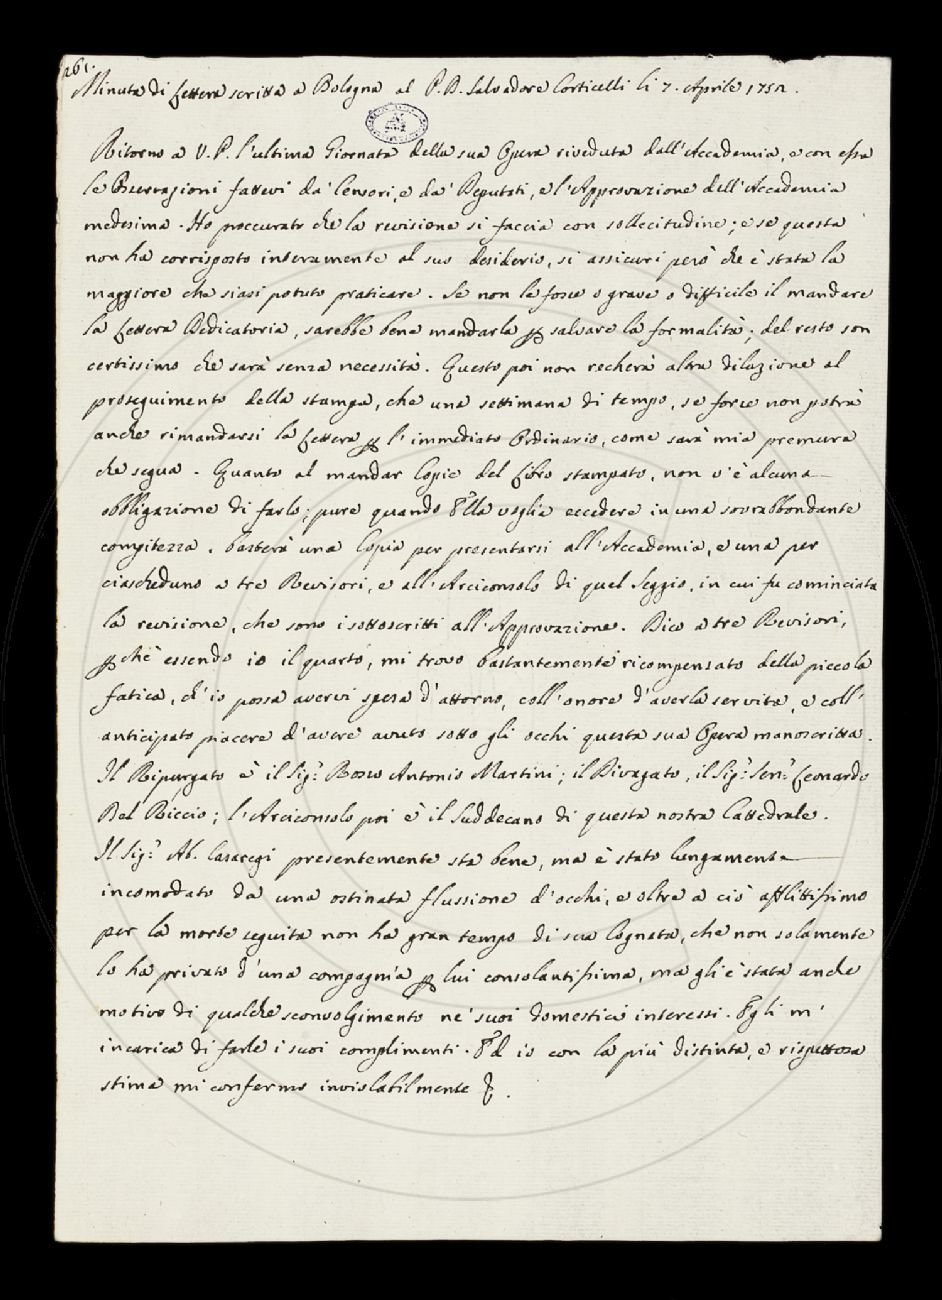 261.
Minuta di Lettera scritta a Bologna al P. D. Salvadore Corticelli li 7. Aprile 1752.
Ritorno a V. P. l'ultima Giornata della sua Opera riveduta dall'Accademia, e con essa
le Osservazioni fattevi da' Censori, e da' Deputati, e l'Approvazione dell'Accademia
medesima. Ho proccurato che la revisione si faccia con sollecitudine; e se questa
non ha corrisposto interamente al suo desiderio, si assicuri però che è stata la
maggiore che siasi potuto praticare. Se non le fosse o grave o difficile il mandare
la Lettera Dedicatoria, sarebbe bene mandarla p salvare la formalità; del resto son
certissimo che sarà senza necessità. Questo poi non recherà altra dilazione al
proseguimento della stampa, che una settimana di tempo, se forse non potrà
anche rimandarsi la Lettera p l'immediato Ordinario, come sarà mia premura
che segua. Quanto al mandar Copie del Libro stampato, non v'è alcuna
obbligazione di farlo; pure quando Ella voglia eccedere in una sovrabbondante
compitezza. basterà una Copia per presentarsi all'Accademia, e una per
ciascheduno a tre Revisori, e all'Arciconsolo di quel Seggio, in cui fu cominciata
la revisione, che sono i sottoscritti all'Approvazione. Dico a tre Revisori,
pchè essendo io il quarto, mi trovo bastantemente ricompensato della piccola
fatica, ch'io possa avervi spesa d'attorno, coll'onore d'averla servita, e coll'
anticipato piacere d'avere avuto sotto gli occhi questa sua Opera manoscritta.
Il Ripurgato è il Sig.r Rosso Antonio Martini; il Divagato, il Sig.r Sen.r Leonardo
Del Riccio; l'Arciconsolo poi è il Suddecano di questa nostra Cattedrale.
Il Sig.r Ab. Casaregi presentemente sta bene, ma è stato lungamente
incomodato da una ostinata flussione d'occhi, e oltre a ciò afflittissimo
per la morte seguita non ha gran tempo di sua Cognata, che non solamente
lo ha privato d'una compagnia p lui consolantissima, ma gli è stata anche
motivo di qualche sconvolgimento ne' suoi domestici interessi. Egli m'
incarica di farle i suoi complimenti. Ed io con la più distinta, e rispettosa
stima mi confermo inviolabilmente &.